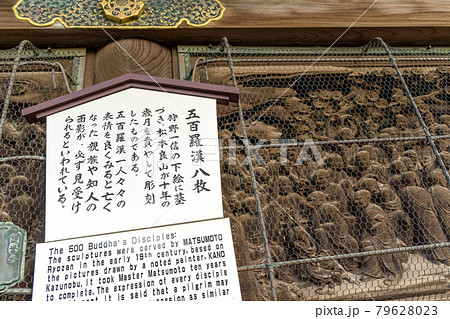 五百羅漢 八枚
狩野一信の下絵に基
づき、松本良山が十年の
歳月を費やして彫刻
したものである。
五百羅漢一人々々の
表情を良くみると亡く
なった親族や知人の
面影が、必ず見受け
られるといわれている。
The 500 Buddha's Disciples:
The sculptures were carved by MATSUMOTO
Ryozan in the early 19th century, based on
the pictures drawn by a noted painter, KANO
Kazunobu. It took Master Matsumoto ten years
to complete. The expression of every disciple
is different. It is said that a pilgrim may
expression as similar
PIXTA
pixta.jp - 79628023